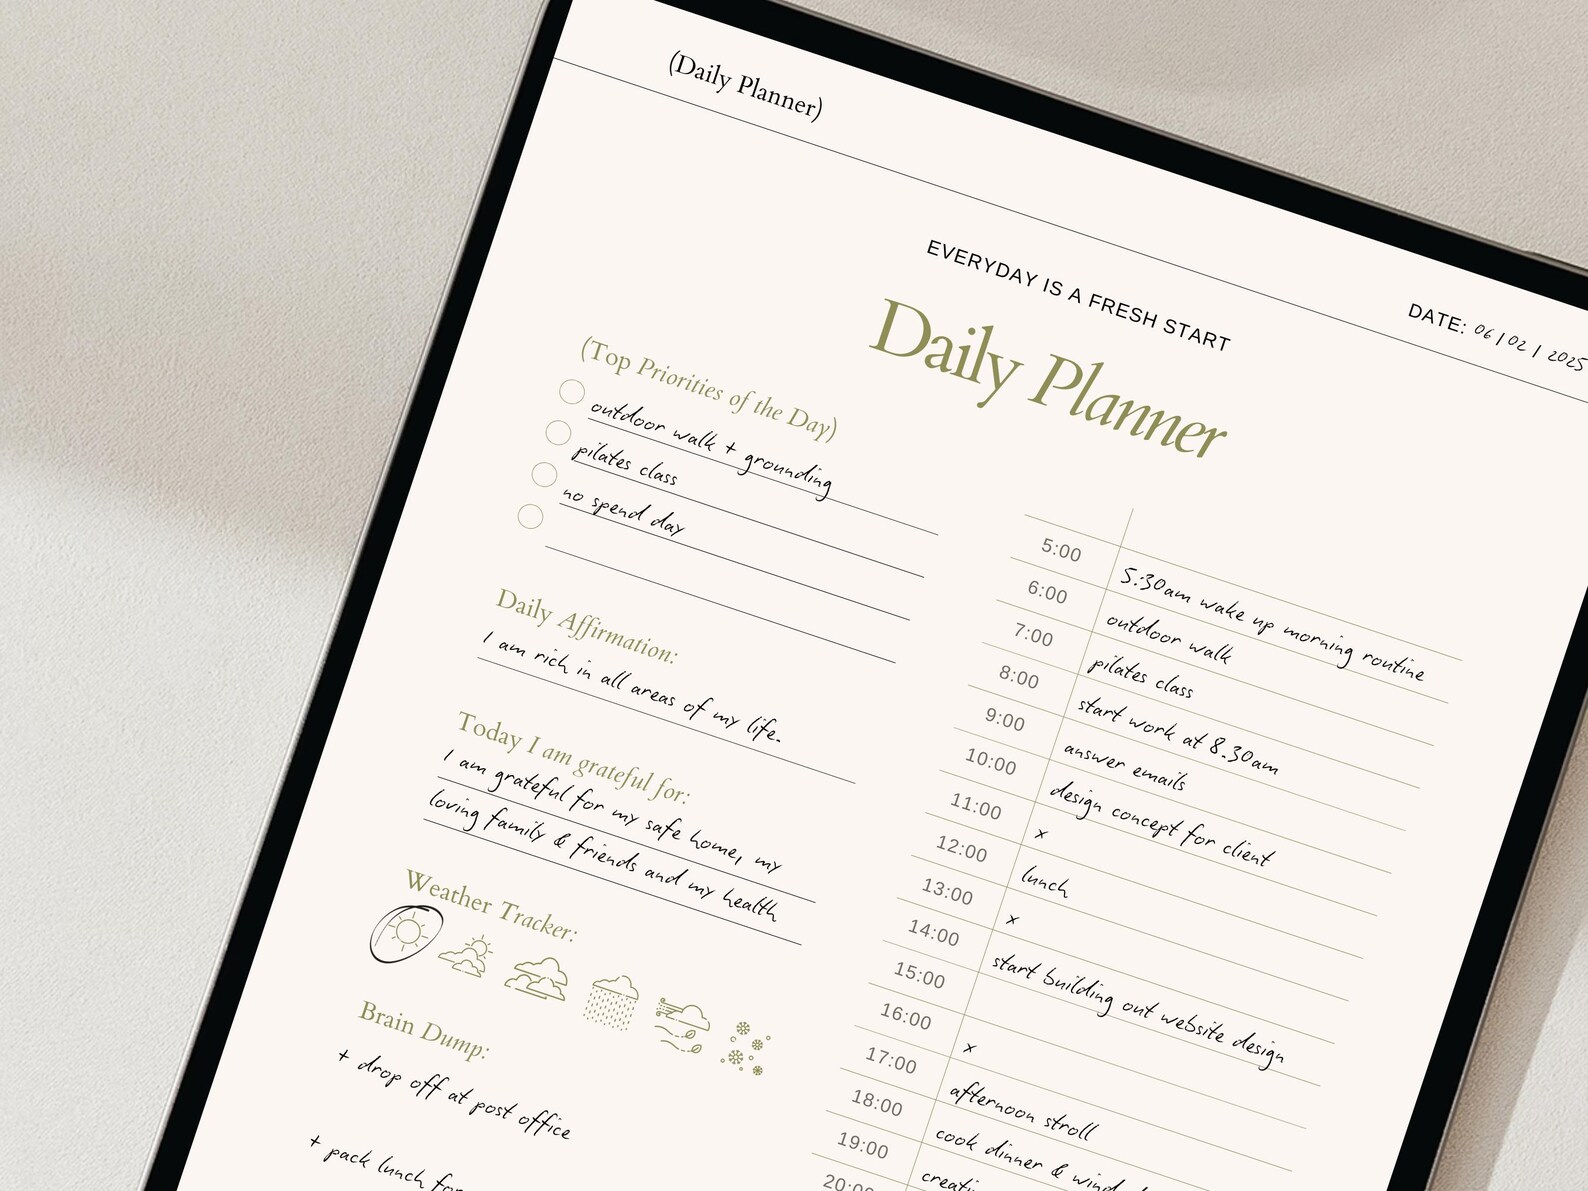 (Daily Planner)
DATE: 06 / 02 / 2025
EVERYDAY IS A FRESH START
Daily Planner
(Top Priorities of the Day)
outdoor walk + grounding
pilates class
no spend day
Daily Affirmation:
I am rich in all areas of my life.
Today I am grateful for:
I am grateful for my safe home, my
loving family & friends and my health
Weather Tracker:
Brain Dump:
+ drop off at post office
+ pack lunch for
5:00 5:30am wake up morning routine
6:00 outdoor walk
7:00 pilates class
8:00 start work at 8.30am
9:00 answer emails
10:00 design concept for client
11:00 x
12:00 lunch
13:00 x
14:00 start building out website design
15:00
16:00 x
17:00 afternoon stroll
18:00 cook dinner & wind
19:00
20:00